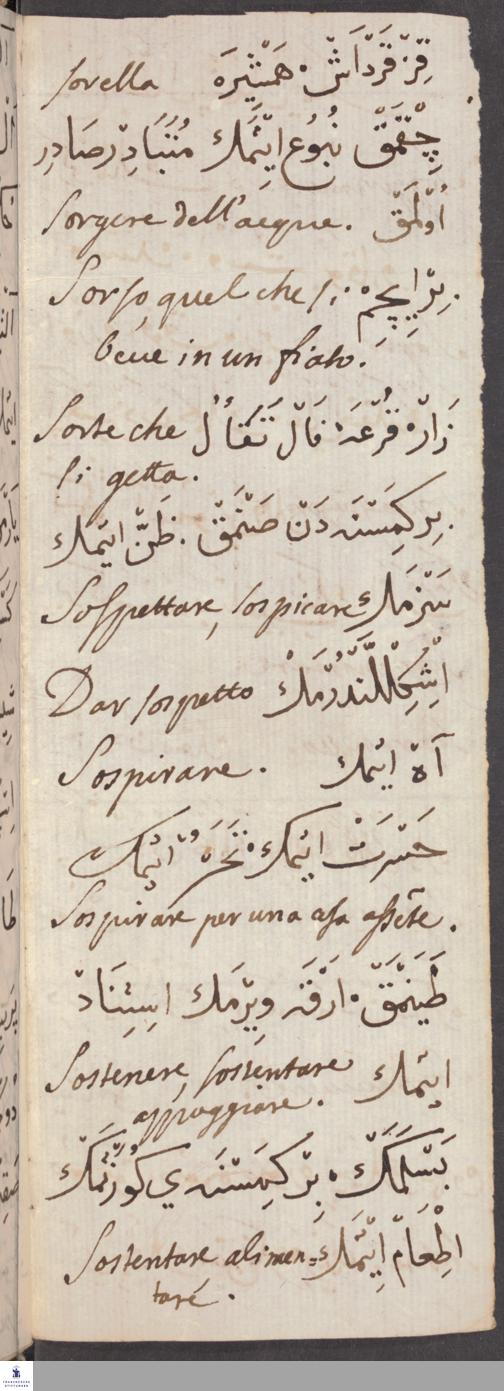 sorella قِزْ قَرْدَاشْ، هَمْشِيرَه
چِقْمَقْ نُبُوُع اِيتْمَكْ مُتَبَادِرْ صَادِرْ
Sorgere dell'acque. اُولْمَقْ
Sorso, quel che si بِرْ اِيچِمْ
beve in un fiato.
Sorte che زَارْ، قُرْعَه، فَالْ تَفَأُلْ
si getta.
بِر كِمَسْنَه دَنْ صَنْمَقْ. ظَنّ ايتمك
Sospettare, sospicare سَزْمَك
Dar sospetto اِشْكِلْلَنْدُرْمَكْ
Sospirare. آهْ ايتمك
حَسْرَتْ ايتمك، تَحَسُّرْ ايتمك
Sospirare per una cosa assente.
طَيَنْمَقْ، ارْقَه ويرْمَك اسِتِنَادْ
Sostenere, sostentare ايتمك
appoggiare.
بَسْلَمَكْ، بِرْ كِمَسْنَه يِ كورُتْمَكْ
Sostentare alimen= اِطْعَامْ اِيتْمَكْ
tare.
FRANCKESCHE STIFTUNGEN